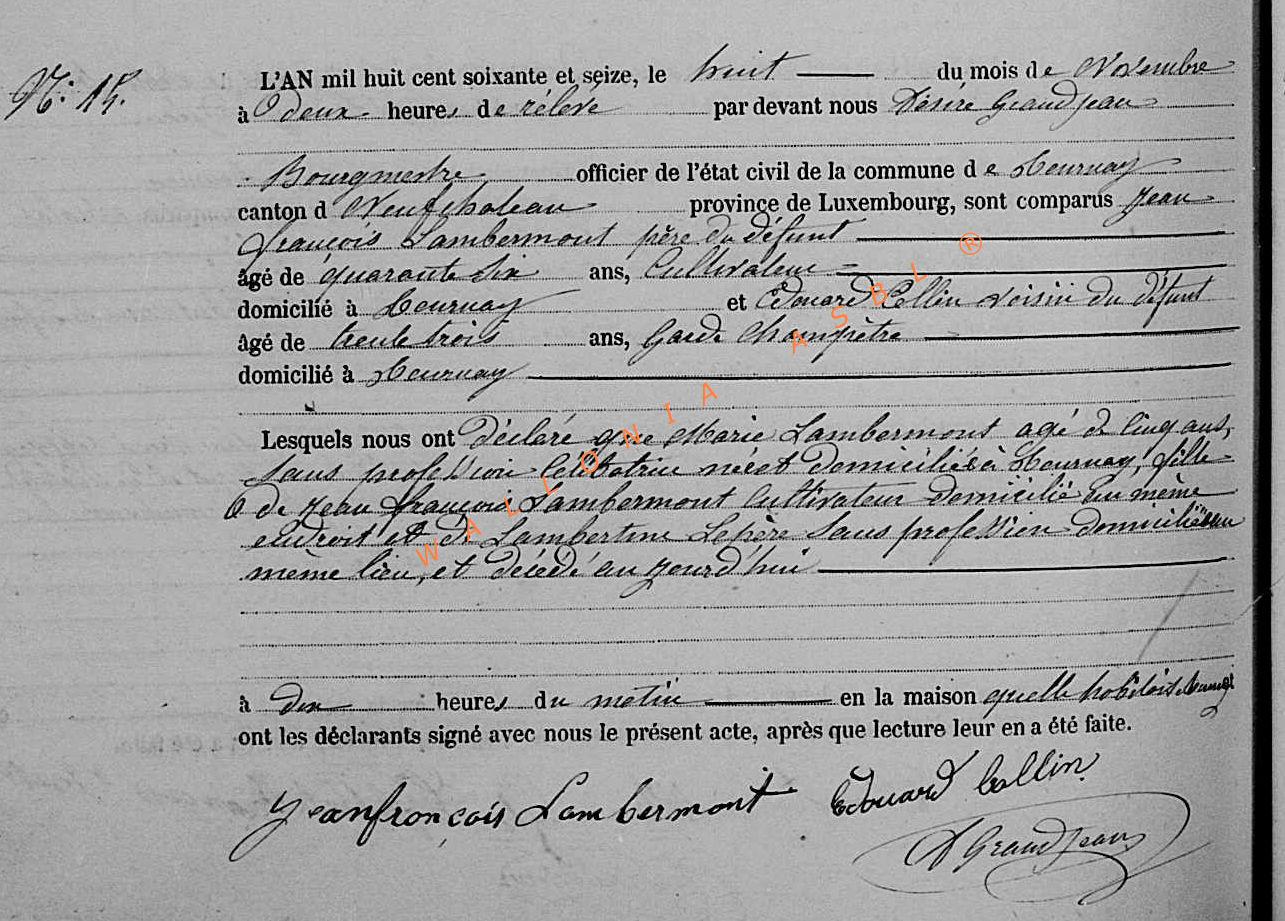 N: 15.
L'AN mil huit cent soixante et seize, le huit du mois de Novembre
à deux heures de rélévé par devant nous Désiré Grandjean
Bourgmestre officier de l'état civil de la commune de Tournay
canton d Neufchateau province de Luxembourg, sont comparus Jean
François Lambermont père du défunt
âgé de quarante six ans, Cultivateur
domicilié à Tournay et Edouard Collin voisin du défunt
âgé de trente trois ans, Garde Champètre
domicilié à Tournay
Lesquels nous ont déclaré que Marie Lambermont agé de cinq ans,
sans profession Célibatrice né et domiciliée à Tournay, fille
de Jean François Lambermont Cultivateur domicilié au même
endroit et de Lambertine Lepère sans profession domiciliée au
même lieu, et décédé aujourd'hui
à dix heures du matin en la maison quelle habitois
ont les déclarants signé avec nous le présent acte, après que lecture leur en a été faite.
Jean françois Lambermont Edouard Collin
D Grandjean
WALLONIA ASBL ®